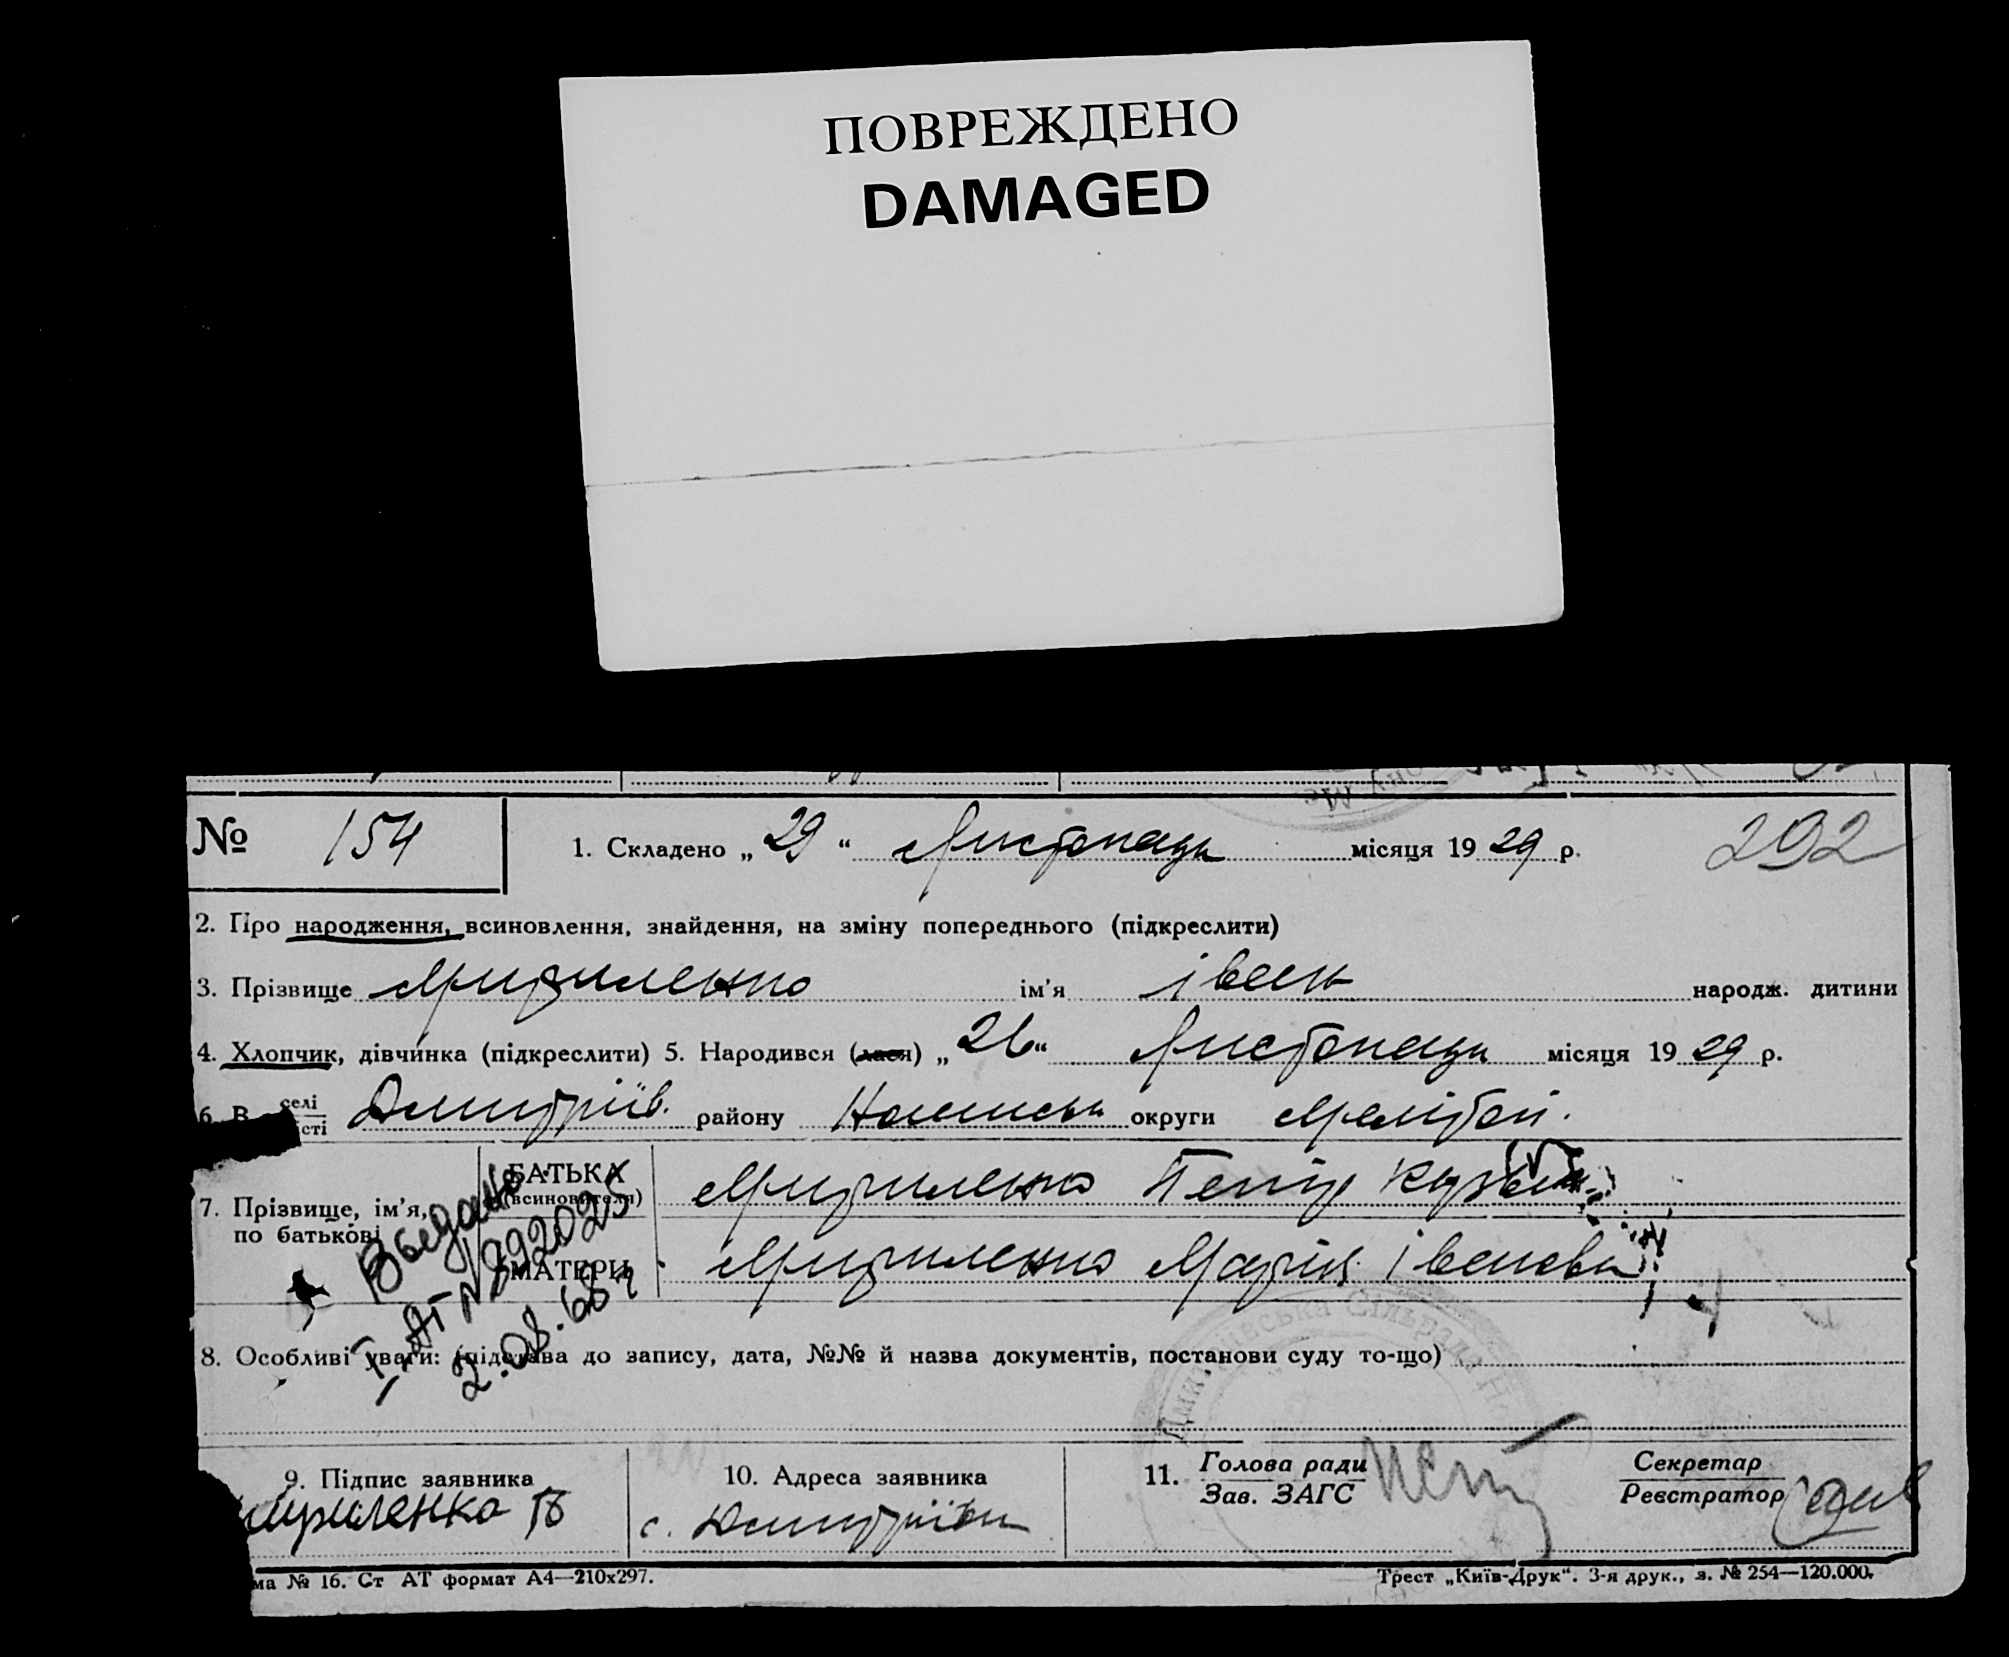 ПОВРЕЖДЕНО
DAMAGED
№ 154
1. Складено „ 29 “ Листопада місяця 19 29 р.
292
2. Про народження, всиновлення, знайдення, на зміну попереднього (підкреслити)
3. Прізвище ім’я Іван народж. дитини
4. Хлопчик, дівчинка (підкреслити) 5. Народився (лася) „ 26 “ Листопада місяця 19 29 р.
6. В селі Дмитріїв. району округи Мелітоп.
7. Прізвище, ім’я, по батькові
БАТЬКА (всиновителя) Петро
МАТЕРИ Марія Іванівна
2.08.68 г
8. Особливі уваги: (підстава до запису, дата, №№ й назва документів, постанови суду то-що)
9. Підпис заявника
10. Адреса заявника
с. Дмитріївка
11. Голова ради
Зав. ЗАГС
Секретар
Реєстратор
ма № 16. Ст АТ формат А4—210х297.
Трест „Київ-Друк“. 3-я друк., з. № 254—120.000.